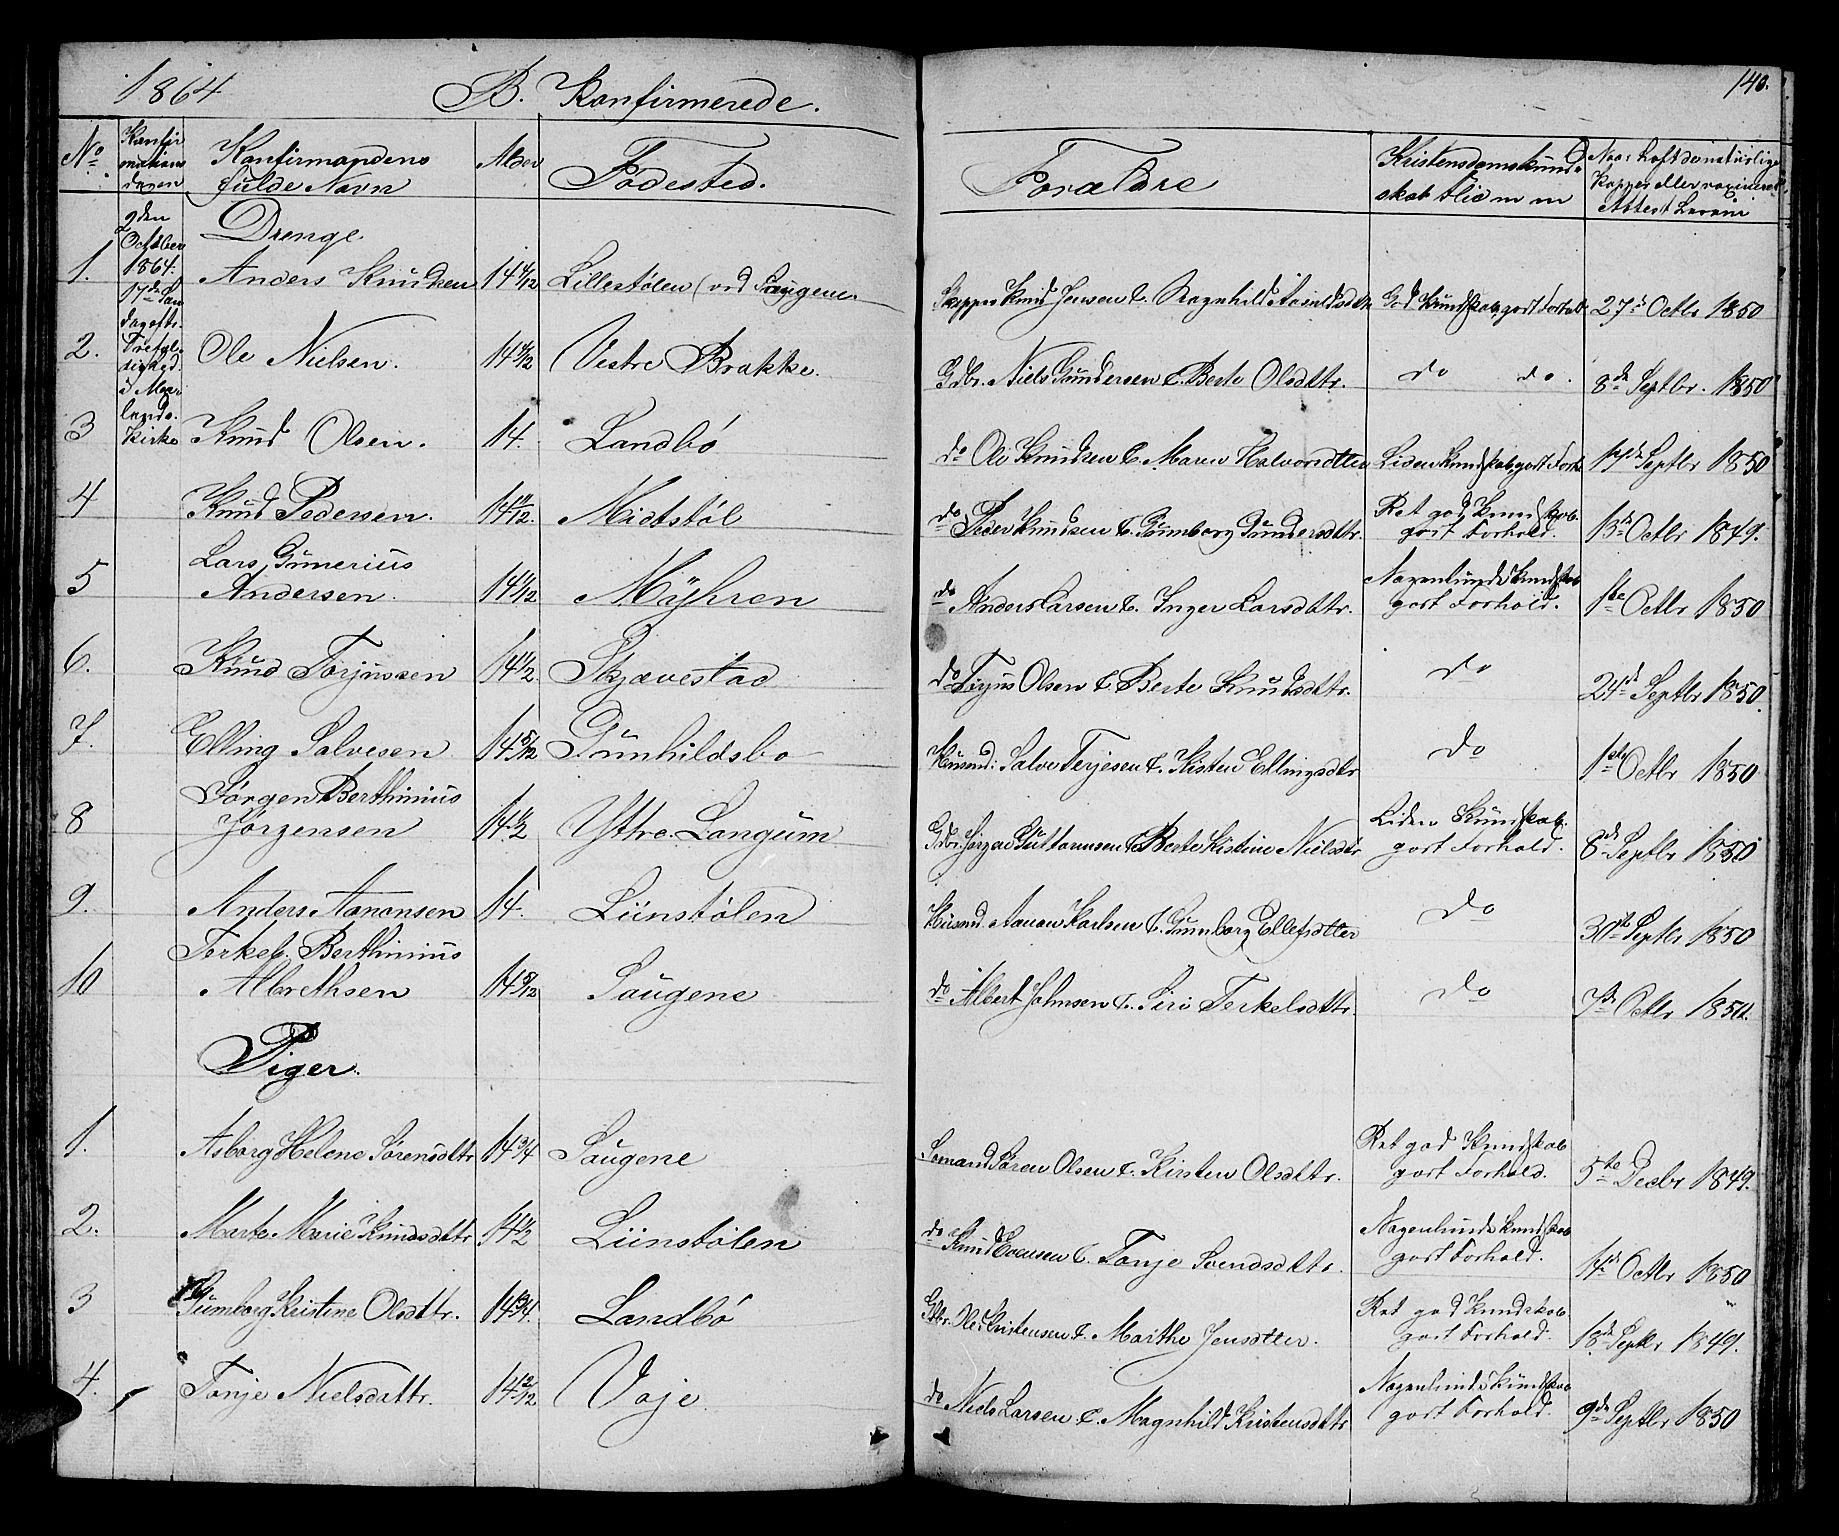 1864 B. Konfirmerede. 140.
No Konfir mations dagen Konfirmandens fulde Navn Alder Fødested. Forældre Kristendomskund- skab Flid m m Naar haft de naturlige Kopper eller vaxineret Attest
9den October 1864. 17de Søndag eftr. Trefoldighed i Mo-lands. Kirke
Drenge
1. Anders Knudsen 14 4/12 Lillestølen (ved Saugene Skipper Knud Jensen & Ragnhild God Kundskab, godt Forhold 27de Octbr 1850
2. Ole Nielsen. 14 4/12 Vestre Brække. Gdbr. Niels Gundersen & Berte Olsdttr. do do. 8de Septbr. 1850
3 Knud Olsen. 14. Landbø do Ole Knudsen & Maren Halvorsdtter Liden Kundskab, godt Forh. 17de Septbr 1850
4 Knud Pedersen. Midtstøl do Peder Knudsen & Gunborg Gundersdttr. Ret god Kundskab. godt Forhold. 13de Octbr 1849.
5 Lars Gunerius Andersen. 14 1/12 Mÿhren do Anders Larsen & Inger Larsdttr. Nogenlunde Kundskab godt Forhold. 1ste Octbr 1850
6. Knud Torjussen 14 1/2 Skjævestad do Torjus Olsen & Berte Knudsdttr. do 24de Septbr 1850.
7. Elling Salvesen 14 5/12 Gunhildsbo Husmd: Salve Terjesen & Kisten Ellingsdtr do 1ste Octbr 1850
8 Jørgen Berthinius Jørgensen 14 1/2 Yttre Langum Gdbr. Jørgen Guttormsen & Berte Kistine Nielsdtr Liden Kundskab. godt Forhold. 8de Septbr 1850
9. Anders Aanonsen 14. Liinstølen Husmd. Aanon Karlsen & Gunborg Ellefsdtter do 30te Septbr 1850
10 Terkel Berthinius Albrethsen 14 5/12 Saugene do Albert Johnsen & Siri Terkelsdttr. do 7de Octbr 1850.
Piger.
1. Asborg Helene Sørensdttr 14 3/4 Saugene Sømand Søren Olsen & Kirsten Olsdttr. Ret god Kundskab godt Forhold. 5te Decbr 1849.
2. Marte Marie Knudsdttr 14 1/2 Liinstølen do Knud Evensen & Tonje Svendsdttr. Nogenlunde Kundskab godt Forhold. Octbr 1850
3 Gunborg Kristine Olsdttr. 14 3/4. Landbø Gdbr. Ole Cristensen & Marthe Jensdtter. Ret god Kundskab godt Forhold. 18de Septbr 1849.
4. Tonje Nielsdattr. Voje. do Niels Larsen & Magnhild Kristensdttr Nogenlunde Kundskab godt Forhold. 9de Septbr 1850